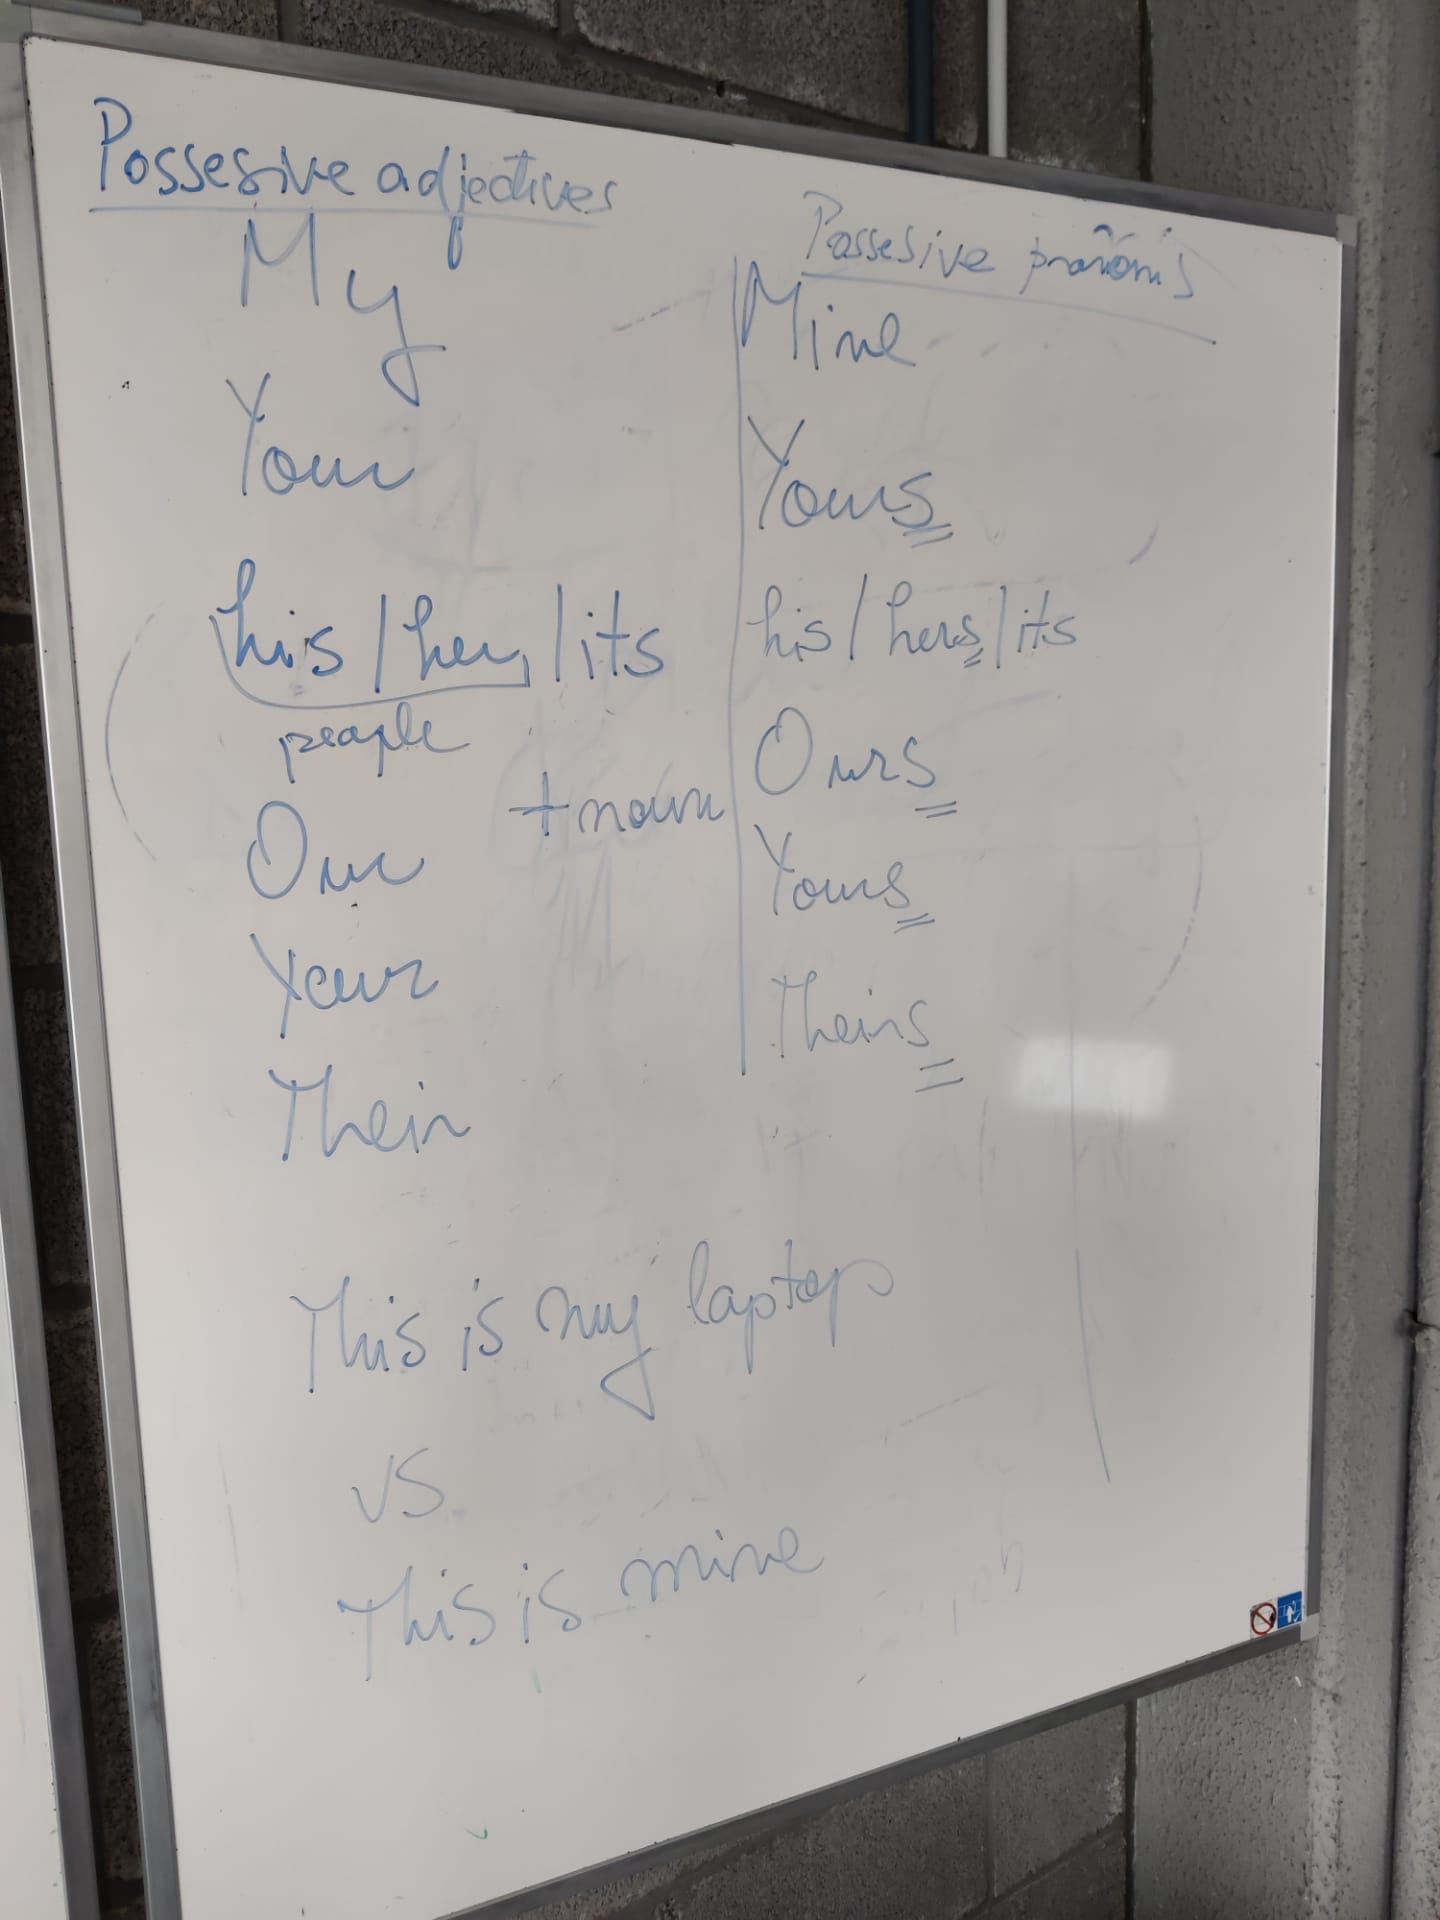 Possesive adjectives
My
Your
his / her / its
people
+ noun
Our
Your
Their
Possesive
Mine
Yours
his / hers / its
Ours
Yours
Theirs
This is my laptop
vs
This is mine